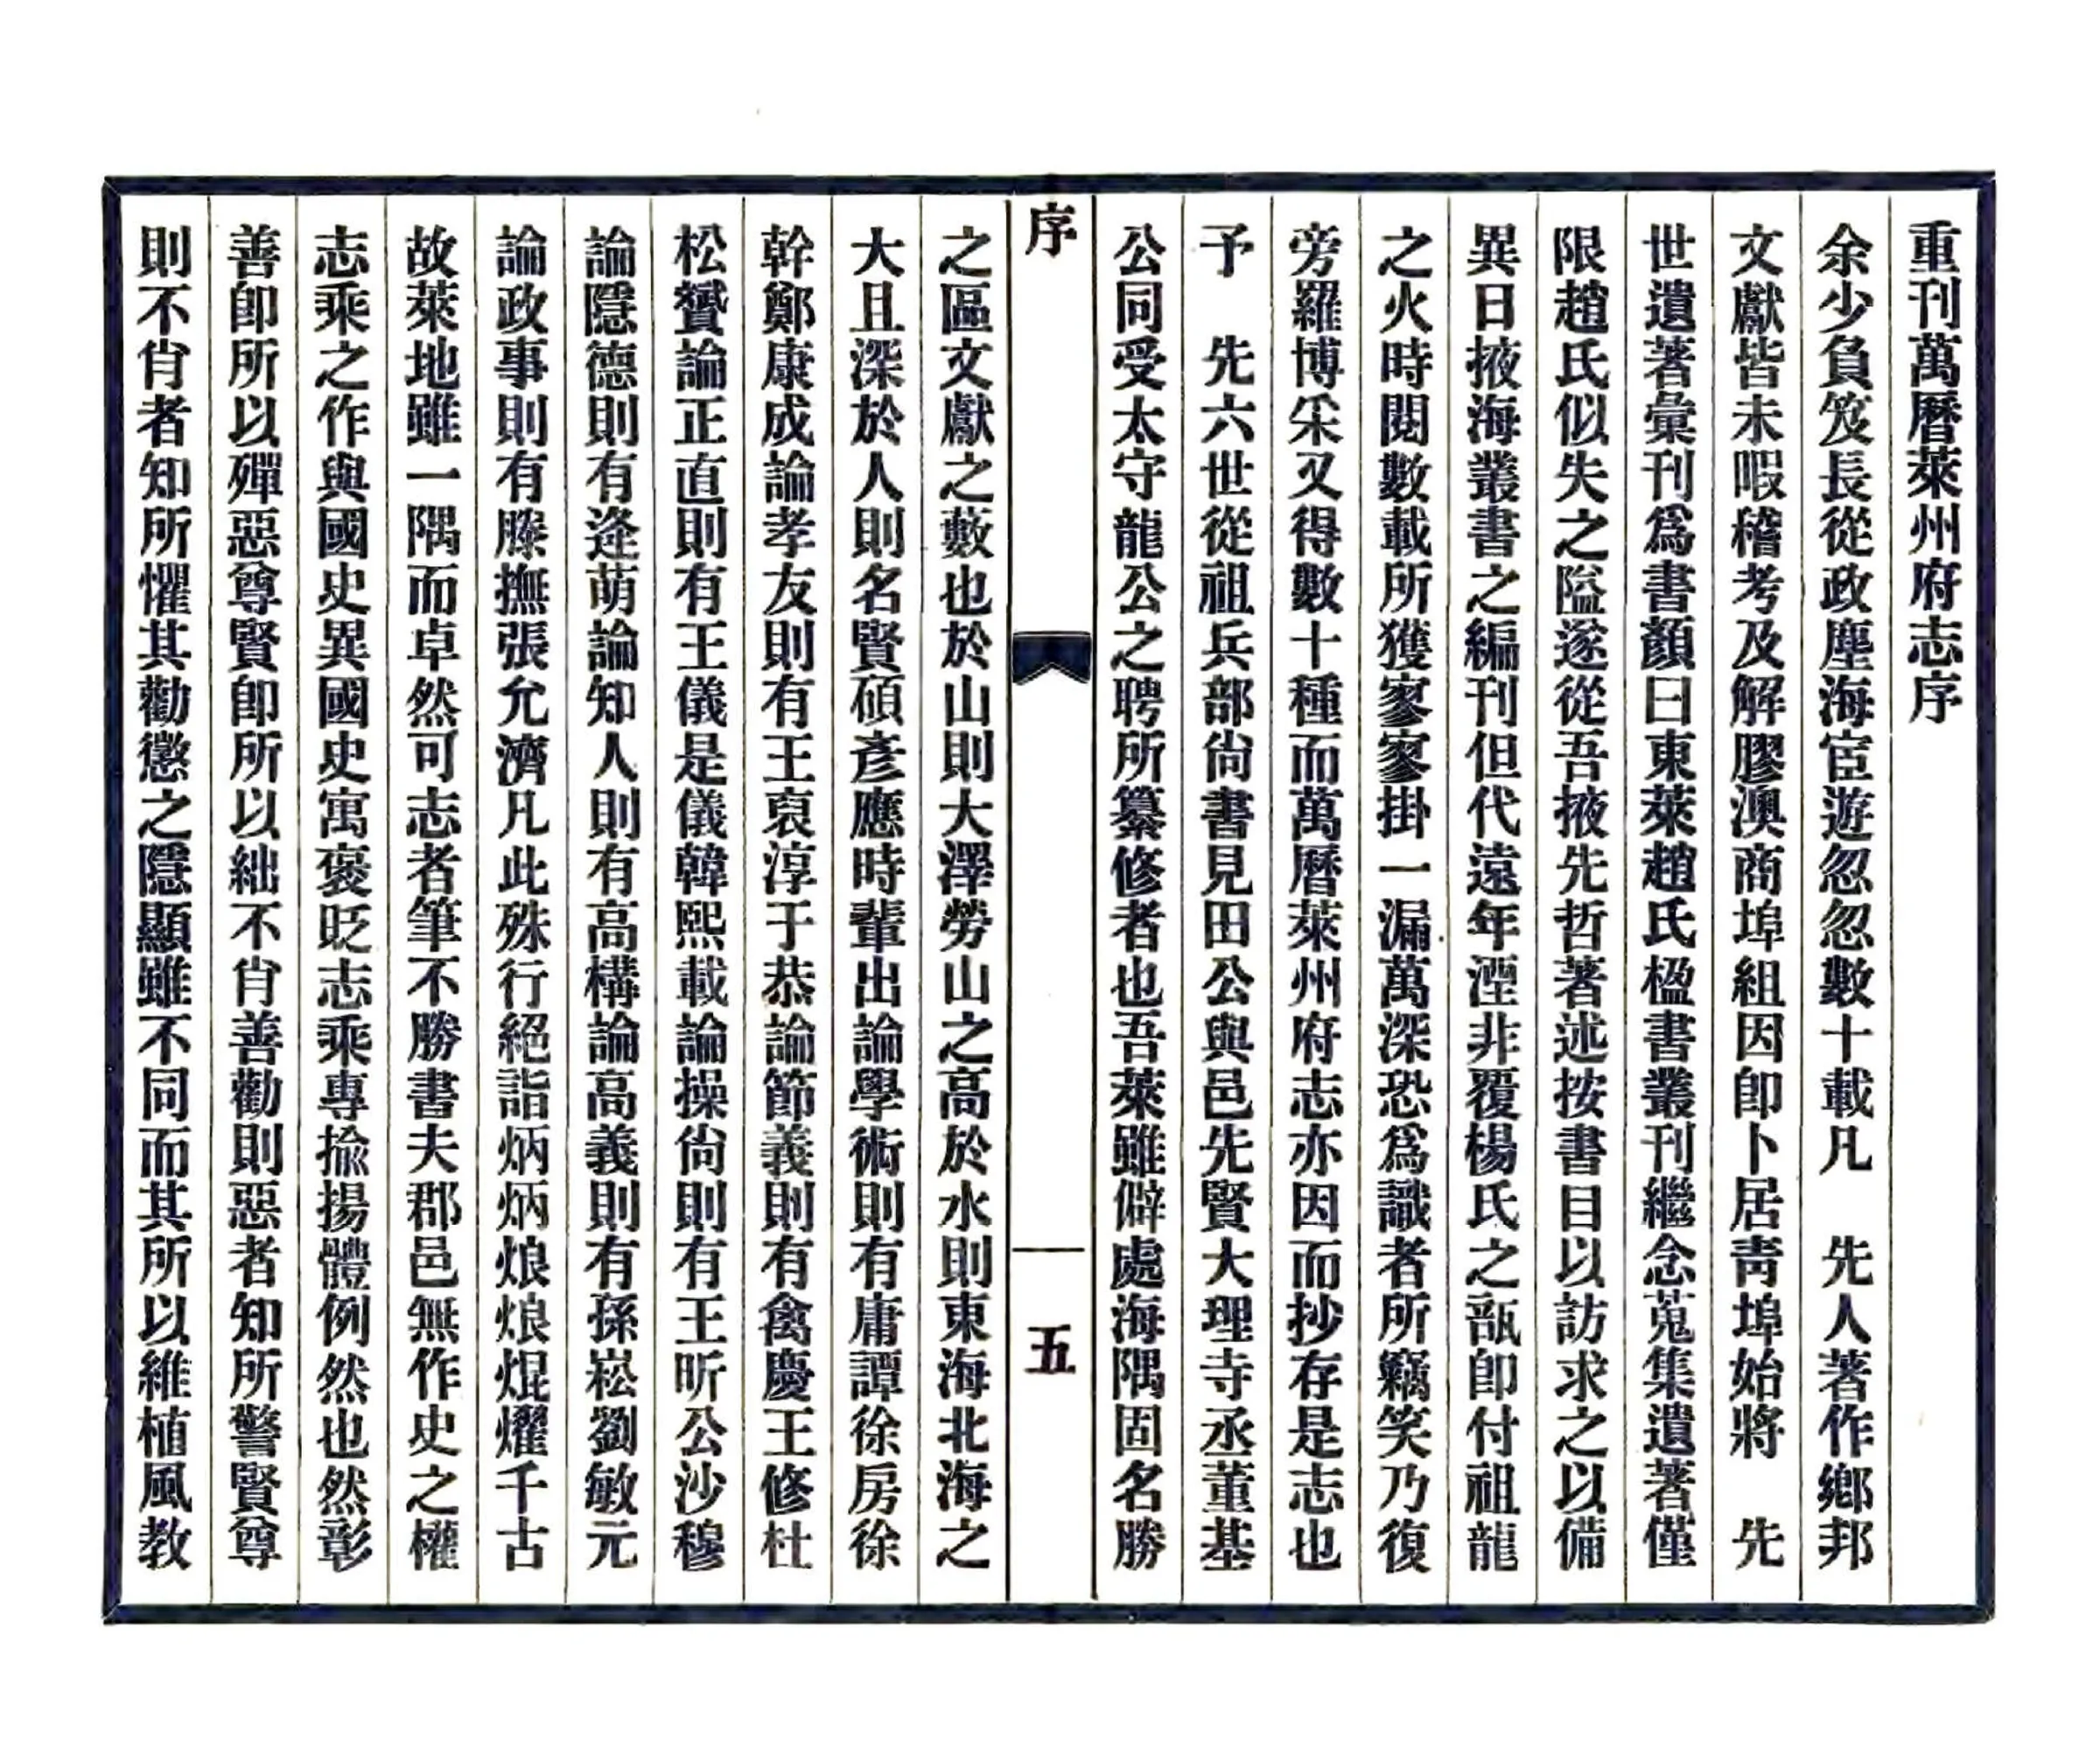 重刊萬曆萊州府志序
余少負笈長從政塵海宦遊忽忽數十載凡　先人著作鄉邦
文獻皆未暇稽考及解膠澳商埠組因卽卜居靑埠始將　先
世遺著彙刊爲書顏曰東萊趙氏楹書叢刊繼念蒐集遺著僅
限趙氏似失之隘遂從吾掖先哲著述按書目以訪求之以備
異日掖海叢書之編刊但代遠年湮非覆楊氏之瓿卽付祖龍
之火時閱數載所獲寥寥掛一漏萬深恐爲識者所竊笑乃復
旁羅博采又得數十種而萬曆萊州府志亦因而抄存是志也
予　先六世從祖兵部尙書見田公與邑先賢大理寺丞董基
公同受太守龍公之聘所纂修者也吾萊雖僻處海隅固名勝
序
五
之區文獻之藪也於山則大澤勞山之高於水則東海北海之
大且深於人則名賢碩彥應時輩出論學術則有庸譚徐房徐
幹鄭康成論孝友則有王裒淳于恭論節義則有禽慶王修杜
松贇論正直則有王儀是儀韓熙載論操尙則有王昕公沙穆
論隱德則有逄萌論知人則有高構論高義則有孫崧劉敏元
論政事則有滕撫張允濟凡此殊行絕詣炳炳烺烺焜燿千古
故萊地雖一隅而卓然可志者筆不勝書夫郡邑無作史之權
志乘之作與國史異國史寓褒貶志乘專揄揚體例然也然彰
善卽所以殫惡尊賢卽所以絀不肖善勸則惡者知所警賢尊
則不肖者知所懼其勸懲之隱顯雖不同而其所以維植風教